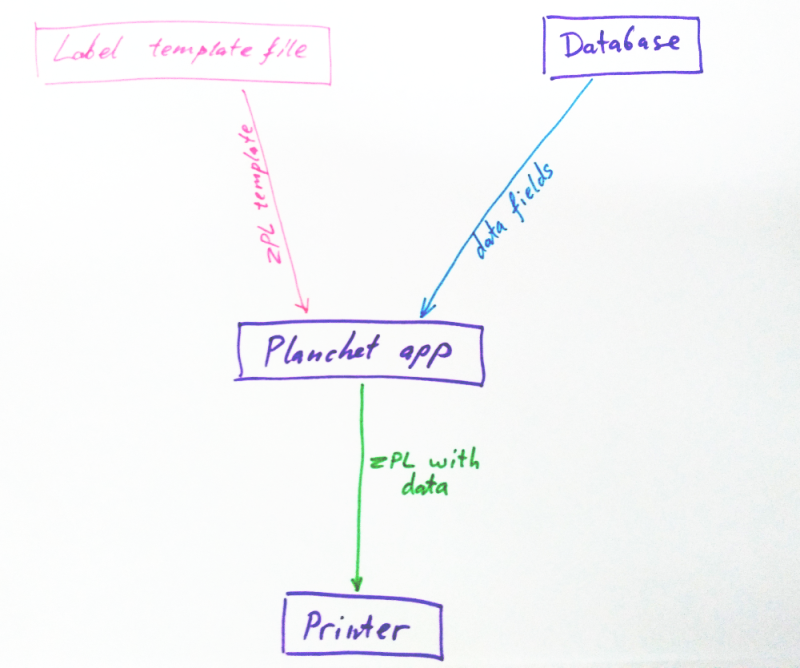 Label template file
Database
ZPL template
data fields
Planchet app
ZPL with
data
Printer